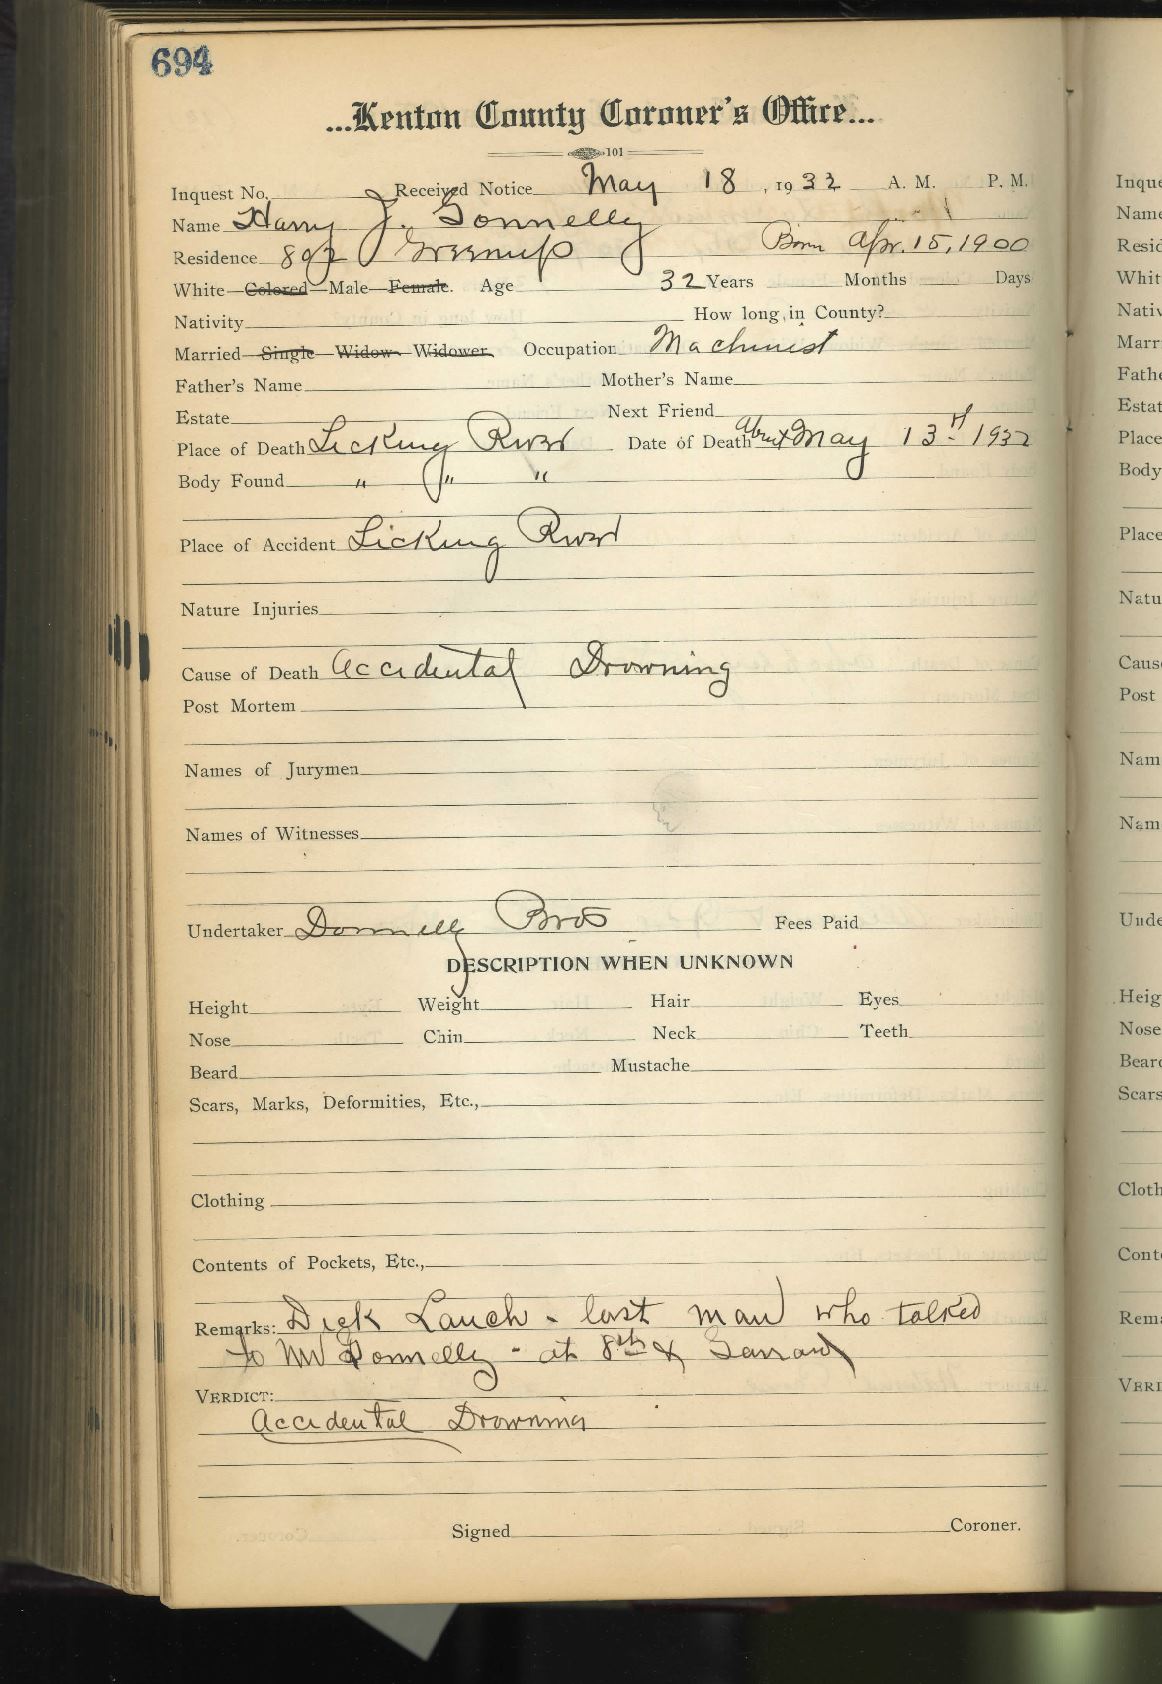 694
...Kenton County Coroner's Office...
101
Inquest No. Received Notice May 18, 1932 A. M. P. M.
Name Harry J. Donnelly
Residence 892 Greenup Born Apr. 15, 1900
White—Colored—Male—Female. Age 32 Years Months Days
Nativity How long in County?
Married—Single—Widow—Widower. Occupation Machinist
Father's Name Mother's Name
Estate Next Friend
Place of Death Licking River Date of Death About May 13th 1932
Body Found " " "
Place of Accident Licking River
Nature Injuries
Cause of Death Accidental Drowning
Post Mortem
Names of Jurymen
Names of Witnesses
Undertaker Donnelly Bros Fees Paid
DESCRIPTION WHEN UNKNOWN
Height Weight Hair Eyes
Nose Chin Neck Teeth
Beard Mustache
Scars, Marks, Deformities, Etc.,
Clothing
Contents of Pockets, Etc.,
Remarks: Dick Lauch - last man who talked
to Mr Donnelly - at 8th &
VERDICT:
Accidental Drowning
Signed Coroner.
Inque
Name
Resid
Whit
Nativ
Marr
Fathe
Estat
Place
Body
Place
Natu
Caus
Post
Nam
Nam
Unde
Heig
Nose
Beard
Scars
Cloth
Conte
Rema
VERI